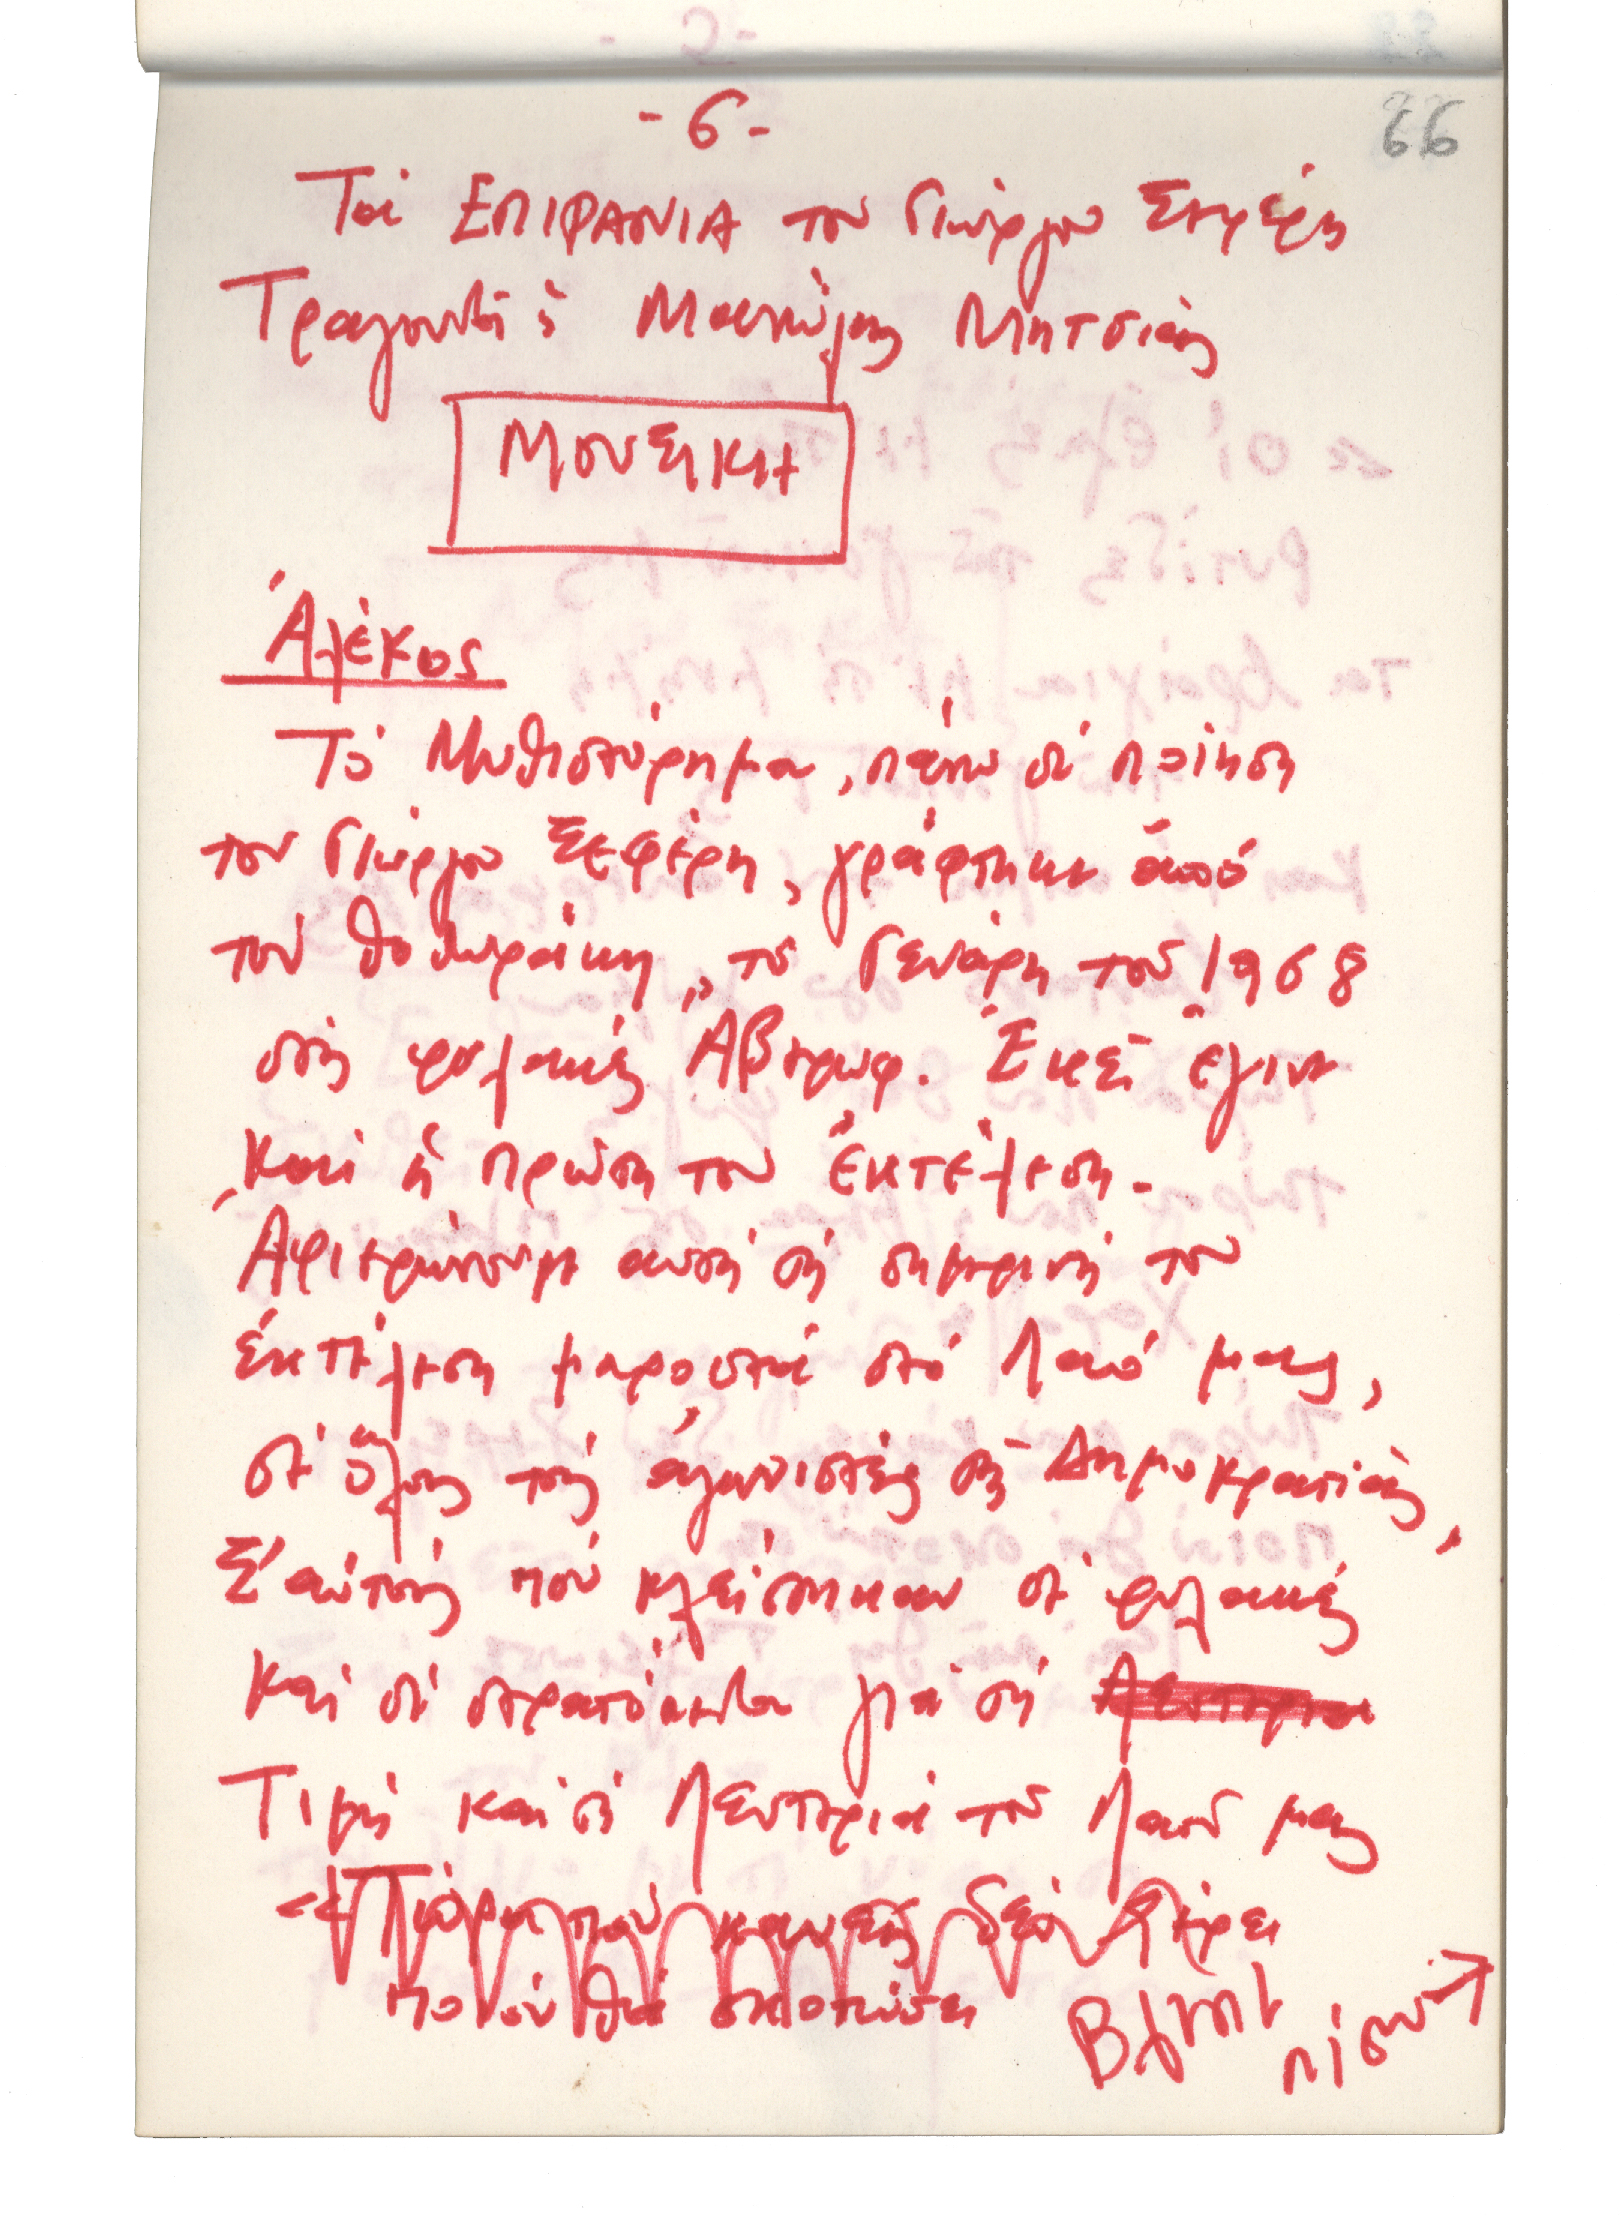 - 6 -
66
Τά ΕΠΙΦΑΝΙΑ του Γιώργου Σεφέρη
Τραγουδεῖ ὁ Μανώλης Μητσιάς
ΜΟΥΣΙΚΗ
Ἀλέκος
Τό Μυθιστόρημα, πάνω σέ ποίηση
του Γιώργου Σεφέρη, γράφτηκε ἀπό
τόν Θοδωράκη, τό Γενάρη τοῦ 1968
στίς φυλακές Ἀβέρωφ. Ἐκεῖ ἔγινε
καί ἡ πρώτη του ἐκτέλεση.
Ἀφιερώνουμε αυτή τή σημερινή του
ἐκτέλεση μπροστά στό λαό μας,
σέ ὅλους τούς ἀγωνιστές τῆς Δημοκρατίας,
Σ' αὐτούς πού κλείστηκαν σέ φυλακές
καί σέ στρατόπεδα γιά τή Λευτεριά
Τιμή καί τή Λευτεριά τοῦ Λαοῦ μας
<<Τώρα πού κανείς δέν ξέρει
ποιόν θά σκοτώσει
Βλέπε πίσω →